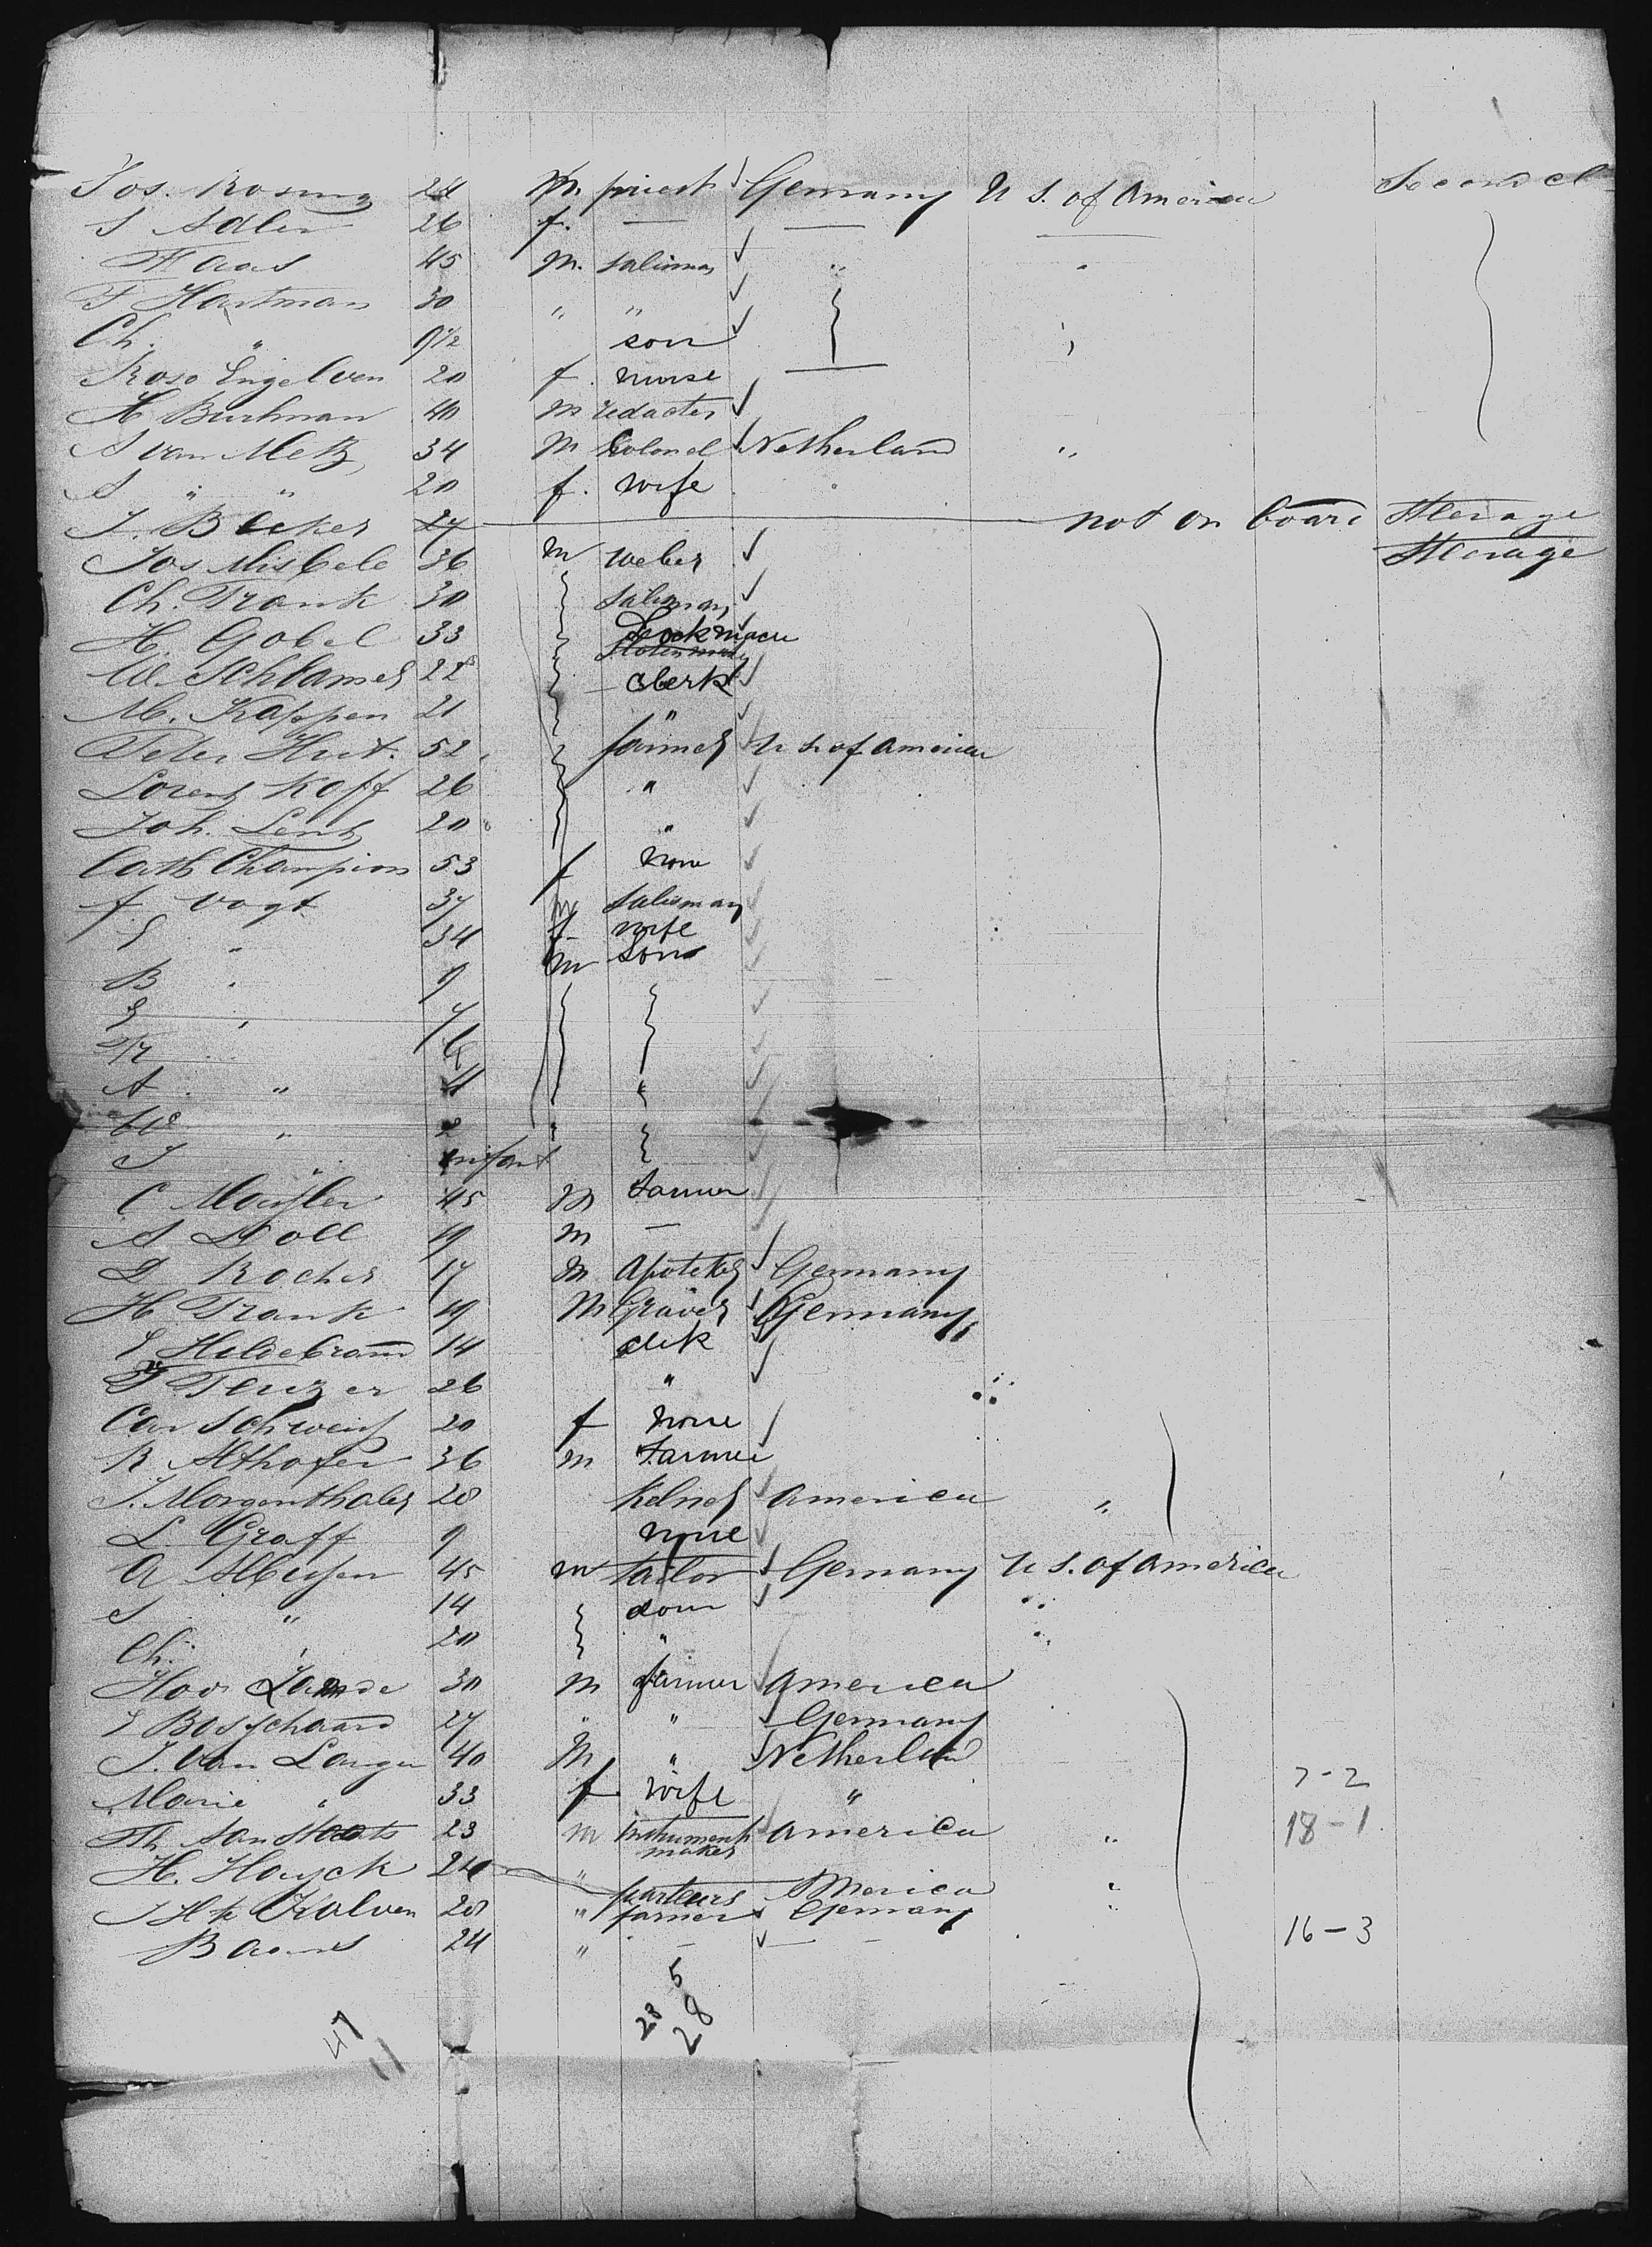 Jos. Rosing 24 m. priest Germany U S. of America Second cl
S Adler 26 f. —
Haas 45 m. salisman " "
F Hartman 30 " "
Ch. " 9 1/2 son
Rosa Engelven 20 f. nurse —
H Burhman 40 m redacter
A van Metz 34 m Colonel Netherland "
S " " 20 f. wife
J. Becker 27 not on board Sterage
Jos Misbele 36 m weber Sterage
Ch. Frank 30 salisman
H. Gobel 33 Lockmacer
W. Schlamer 22 clerk
M. Kappen 21 "
Peter Hut. 52 farmer U S of America
Lorenz Koff 26 "
Joh. Lentz 20 "
Cath Champion 53 f None
f. Vogt 37 m salisman
E " 34 f wife
B " 9 m son
E " 7
Fr " 6
A " 4
W " 2 "
J " infant
C 45 m Farmer
A Doll 19 m —
D Rocher 17 m Apoteker Germany
H Frank 19 m Graver Germany
E Hildebrand 14 clek "
F Tenzer 26 "
Car Schweitz 20 f None
R Althofer 36 m Farmer
J. Morgenthaler 28 Kelner America "
L. Graff 9 none
A 45 m tailor Germany U S. of America
S " 14 son "
Ch. " 20 " "
30 m farmer America
E Bosschaard 27 " " Germany
J. van Langen 40 m " Netherland
Marie " 33 f wife " 7-2
Th. van Staats 23 m instrument maker America " 18-1
H. Hayck 24 " America "
Kolven 28 " farmer Germany "
24 " — — 16-3
5
28 28
47 11